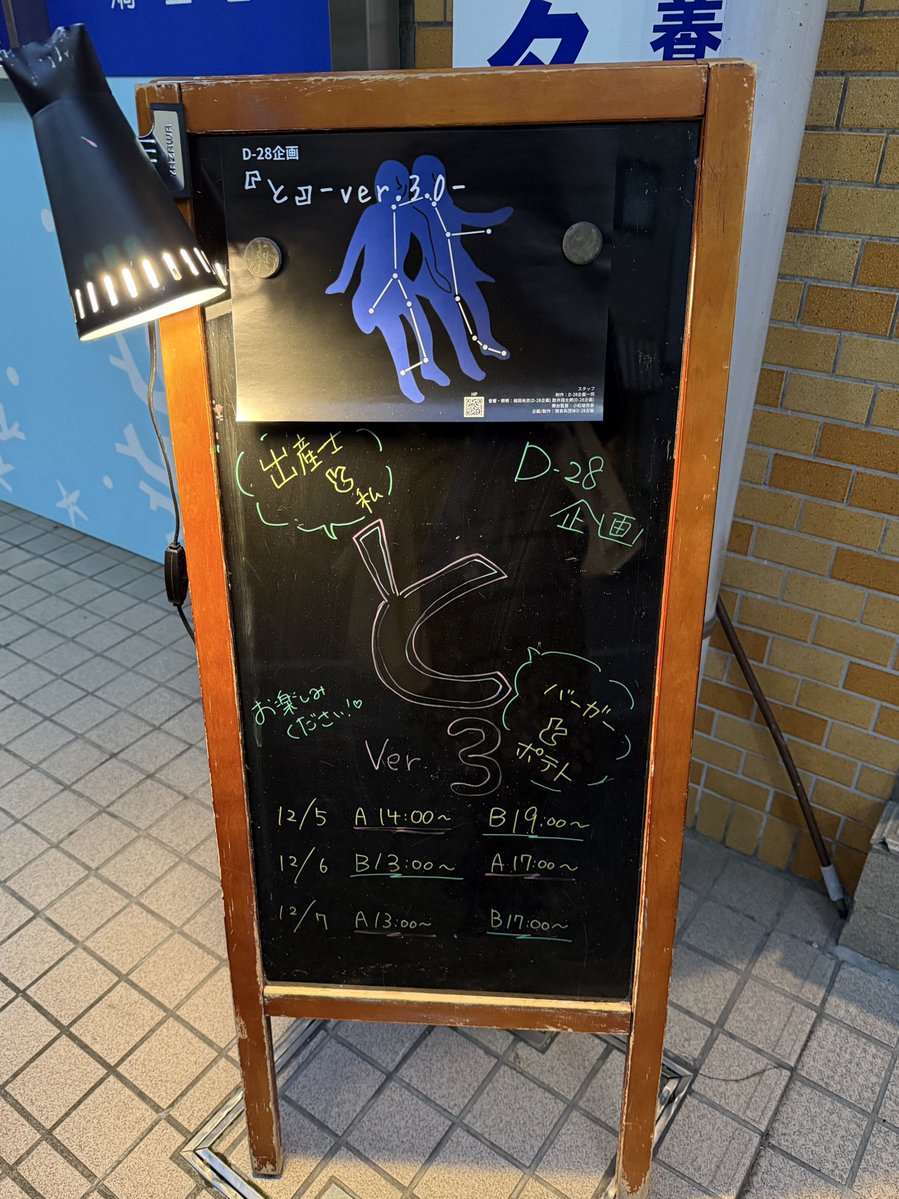 養
D-28企画
『と』-ver.3.0-
HP
スタッフ
制作：D-28企画一同
出産士
と
私
D-28
企画
と
お楽しみ
ください!♡
バーガー
と
ポテト
Ver. 3
12/5 A 14:00〜 B 19:00〜
12/6 B 13:00〜 A 17:00〜
12/7 A 13:00〜 B 17:00〜